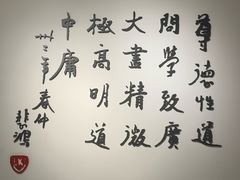 尊德性道
問學致廣
大盡精微
極高明道
中庸
卅年春仲
悲鴻